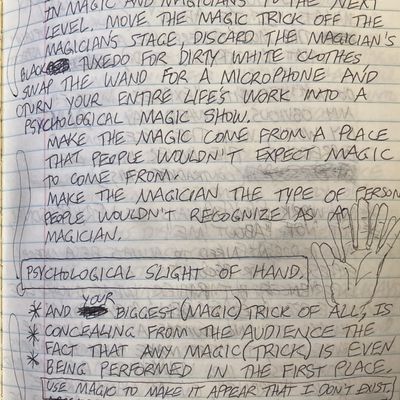 IN MAGIC AND MAGICIANS TO THE NEXT
LEVEL. MOVE THE MAGIC TRICK OFF THE
MAGICIANS STAGE, DISCARD THE MAGICIAN'S
BLACK TUXEDO FOR DIRTY WHITE CLOTHES
SWAP THE WAND FOR A MICROPHONE AND
TURN YOUR ENTIRE LIFE'S WORK INTO A
PSYCHOLOGICAL MAGIC SHOW.
MAKE THE MAGIC COME FROM A PLACE
THAT PEOPLE WOULDN'T EXPECT MAGIC
TO COME FROM.
MAKE THE MAGICIAN THE TYPE OF PERSON
PEOPLE WOULDN'T RECOGNIZE AS A
MAGICIAN.
PSYCHOLOGICAL SLIGHT OF HAND.
* AND YOUR BIGGEST (MAGIC) TRICK OF ALL, IS
* CONCEALING FROM THE AUDIENCE THE
* FACT THAT ANY MAGIC (TRICK) IS EVEN
BEING PERFORMED IN THE FIRST PLACE.
USE MAGIC TO MAKE IT APPEAR THAT I DON'T EXIST.